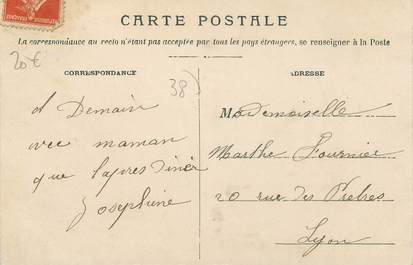 CARTE POSTALE
La correspondance au recto n'étant pas acceptée par tous les pays étrangers, se renseigner à la Poste
20€
CORRESPONDANCE
38)
ADRESSE
d Demain
vec maman
que l'apres diner
Josephine
Mademoiselle
Marthe Fournier
20 rue des Prêtres
Lyon